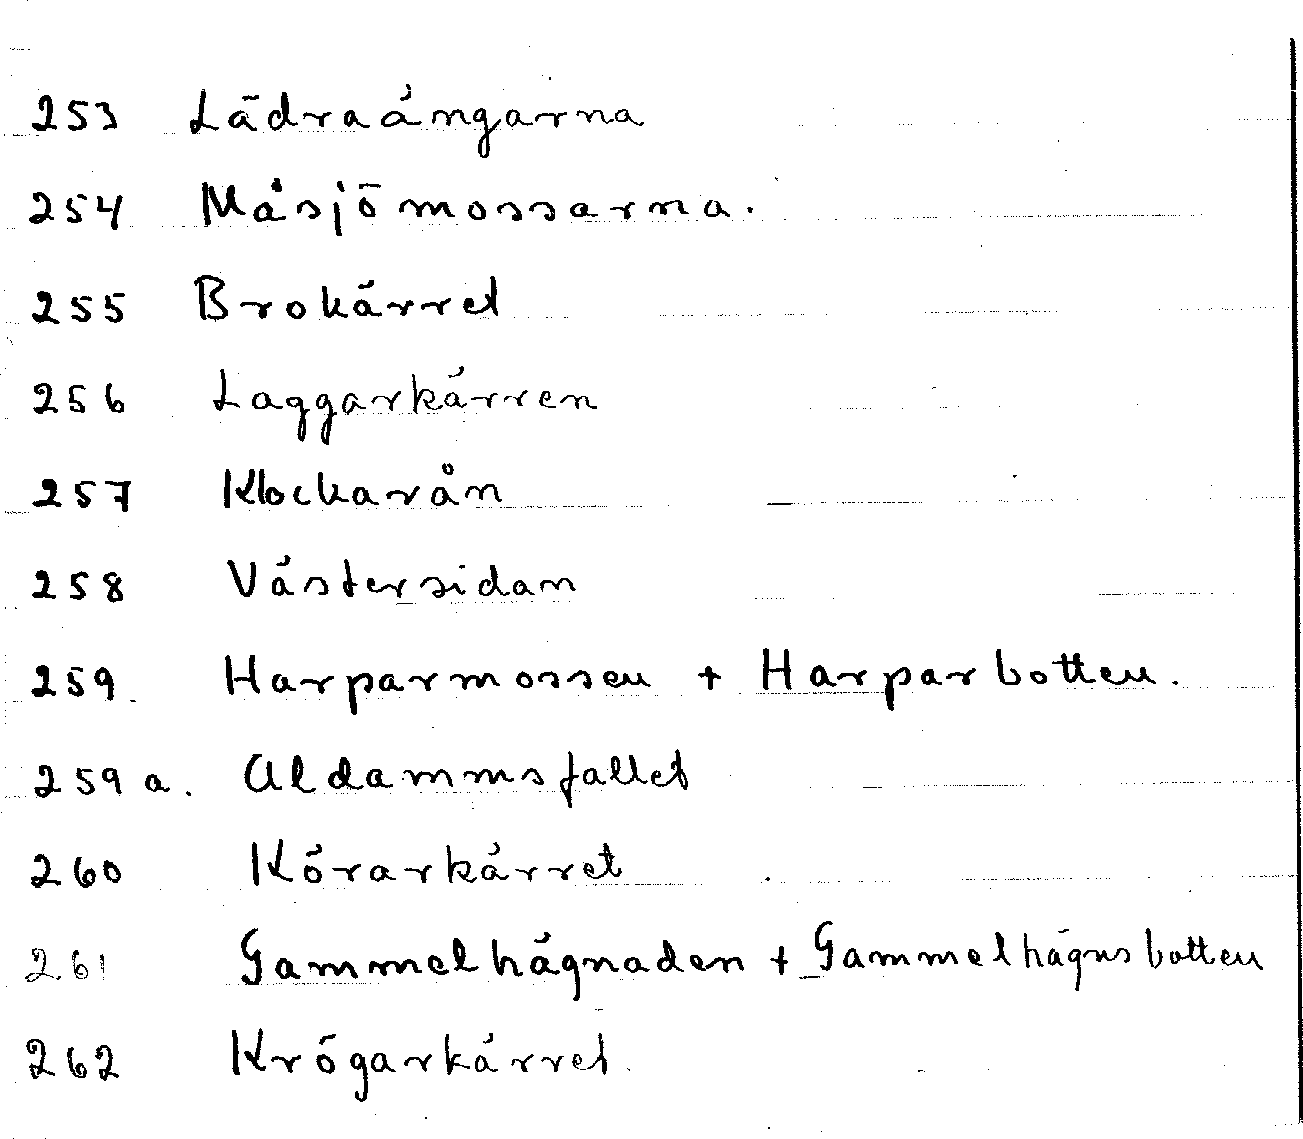 253 Lädraängarna
254 Måsjömossarna.
255 Brokärret
256 Laggarkärren
257 Klockarån
258 Västersidan
259. Harparmossen + Harparbotten.
259 a. Aldammsfallet
260 Körarkärret
261 Gammelhägnaden + Gammelhägnsbotten
262 Krögarkärret